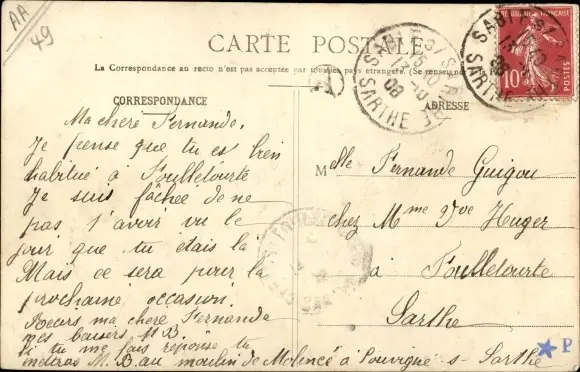 AA
49
CARTE POSTALE
La Correspondance au recto n'est pas acceptée par tous les pays étrangers. (Se renseigner
CORRESPONDANCE
ADRESSE
Ma chere Fernande.
Je pense que tu es bien
habitué à Foulletourte
Je suis fâchée de ne
pas t'avoir vu le
jour que tu étais là
Mais ce sera pour la
prochaine occasion.
Recois ma chere Fernande
mes baisers
si tu me fais réponse tu
mettras M. B. au moulin de à Pouvigne s- Sarthe
Melle Fernande Guigou
chez Mme Vve Huger
à Foulletourte
Sarthe
SABLE S/ SARTHE
SARTHE
08
RÉPUBLIQUE FRANÇAISE
10
POSTES
SABLE S/
SARTHE
P